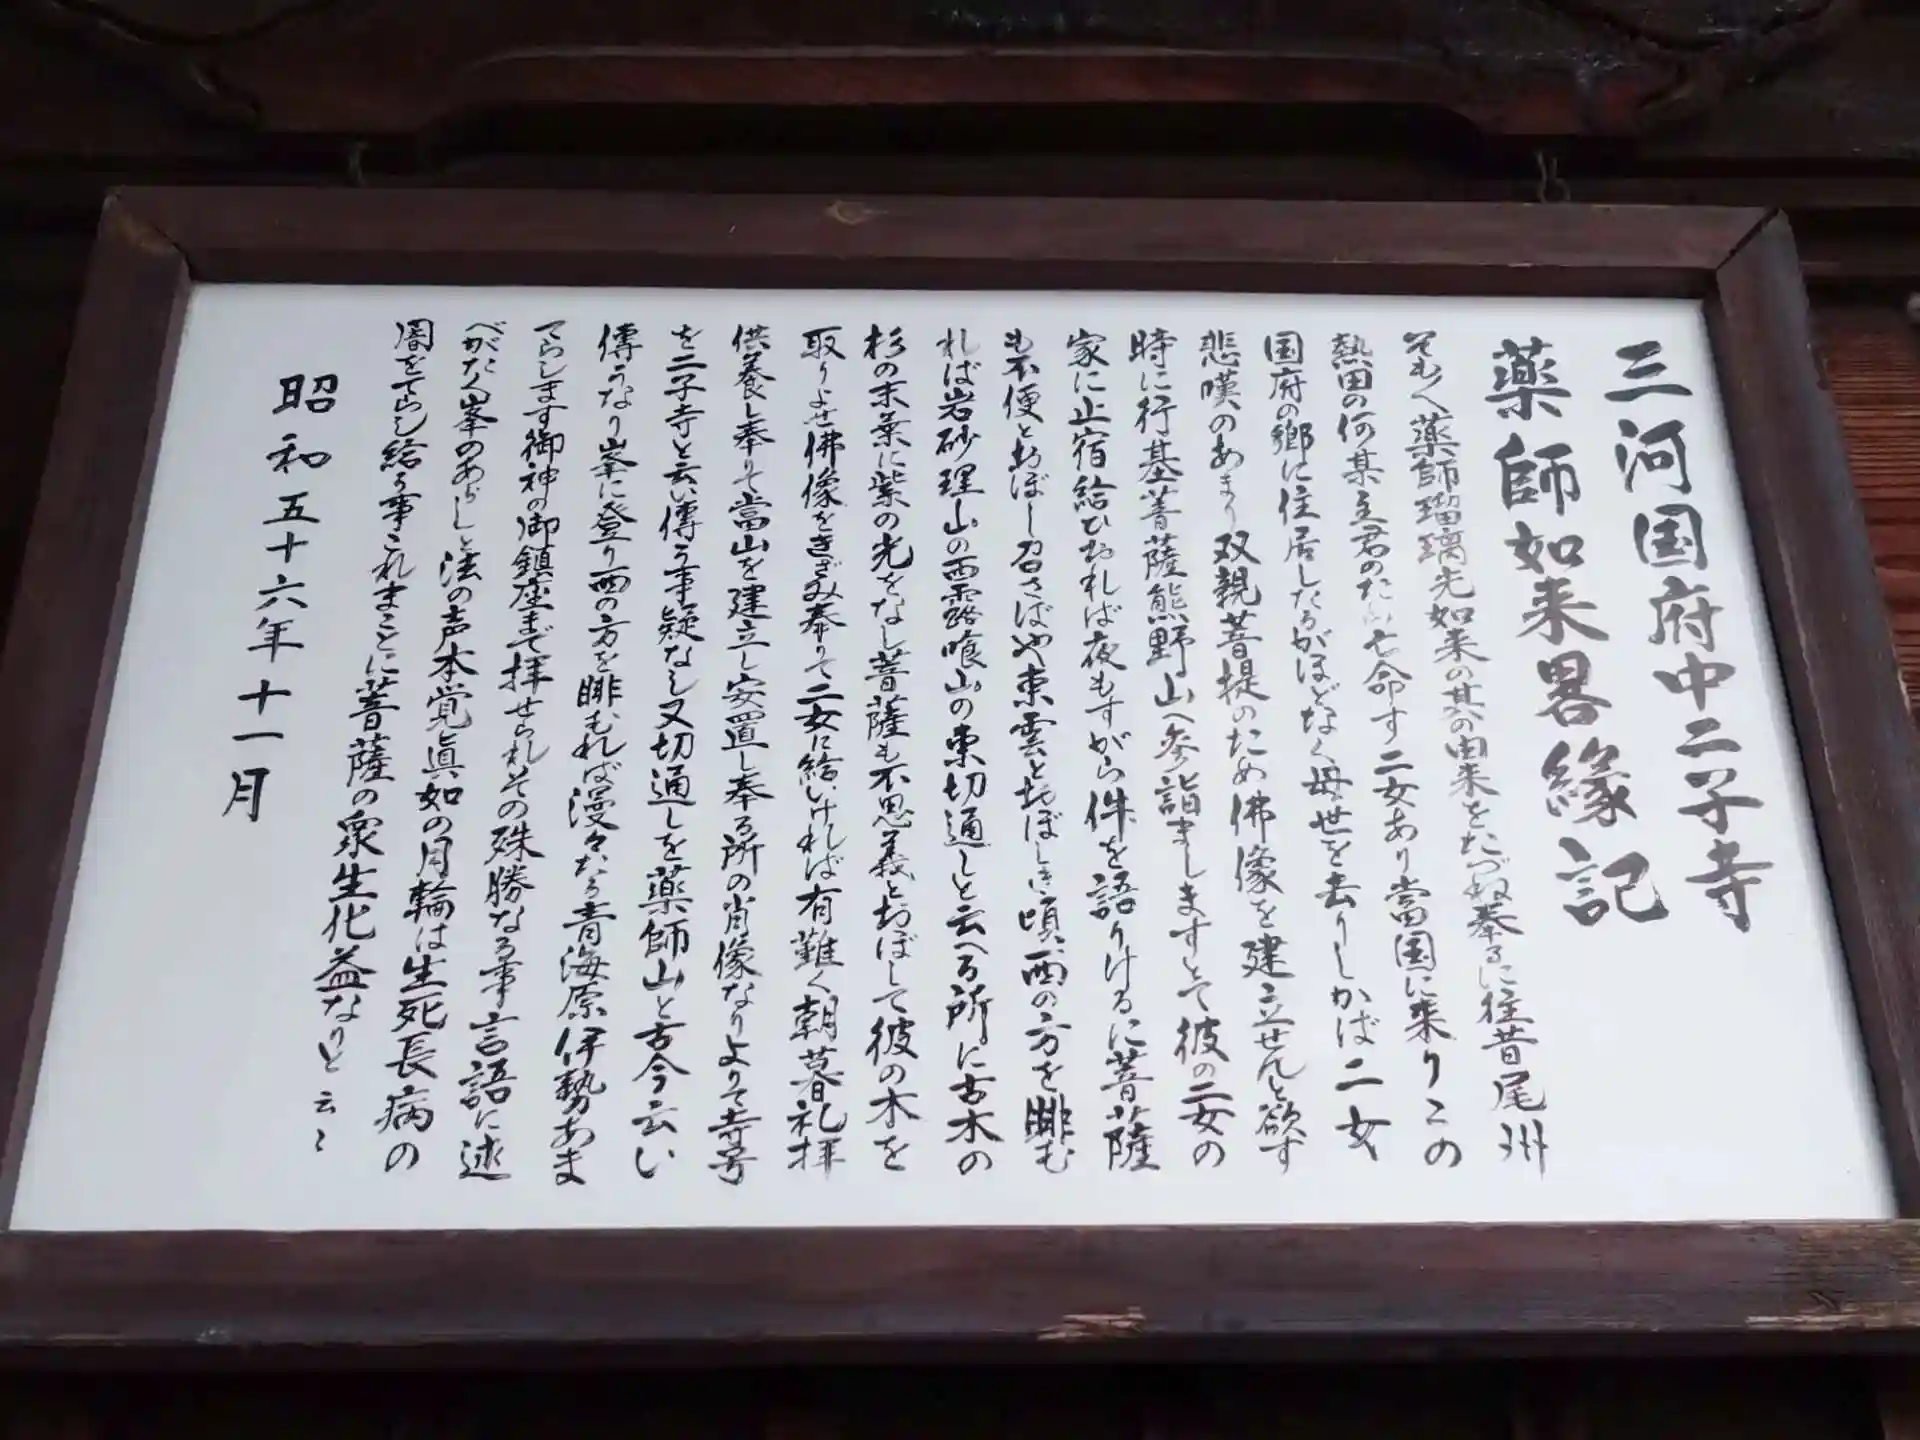 三河国府中二子寺
薬師如来畧縁記
そもく薬師瑠璃光如来の其の由来をたづね奉るに往昔尾州
熱田の何某主君のため亡命す二女あり當国に来りこの
国府の郷に住居したるがほどなく母世を去りしかば二女
悲嘆のあまり双親菩提のため佛像を建立せんと欲す
時に行基菩薩熊野山へ参詣ましますとて彼の二女の
家に止宿給ひおれば夜もすがら件を語りけるに菩薩
も不便とおぼし召さばや東雲とおぼしき頃西の方を眺む
れば岩砂理山の雨露喰山の東切通しと云へる所に古木の
杉の末葉に紫の光をなし菩薩も不思義とおぼして彼の木を
取りよせ佛像をきざみ奉りて二女に給いければ有難く朝暮礼拝
供養し奉りて當山を建立し安置し奉る所の肖像なりよりて寺号
を二子寺と云い傳う事疑なし又切通しを薬師山と古今云い
傳うなり峯に登り西の方を眺むれば漫々たる青海原伊勢あま
てらします御神の御鎮座まで拝せられその殊勝なる事言語に述
べがたく峯のあらしと法の声本覚眞如の月輪は生死長病の
闇をてらし給う事これまことに菩薩の衆生化益なりと云々
昭和五十六年十一月